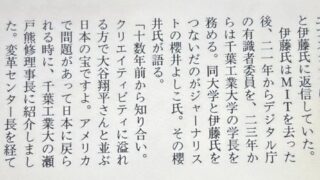 と伊藤氏に返信していた。
伊藤氏はMITを去った
後、二一年からデジタル庁
の有識者委員を、二三年か
らは千葉工業大学の学長を
務める。同大学と伊藤氏を
つないだのがジャーナリス
トの櫻井よしこ氏。その櫻
井氏が語る。
「十数年前から知り合い。
クリエイティビティに溢れ
る方で大谷翔平さんと並ぶ
日本の宝ですよ。アメリカ
で問題があって日本に戻ら
れる時に、千葉工業大の瀬
戸熊修理事長に紹介しまし
た。変革センター長を経て